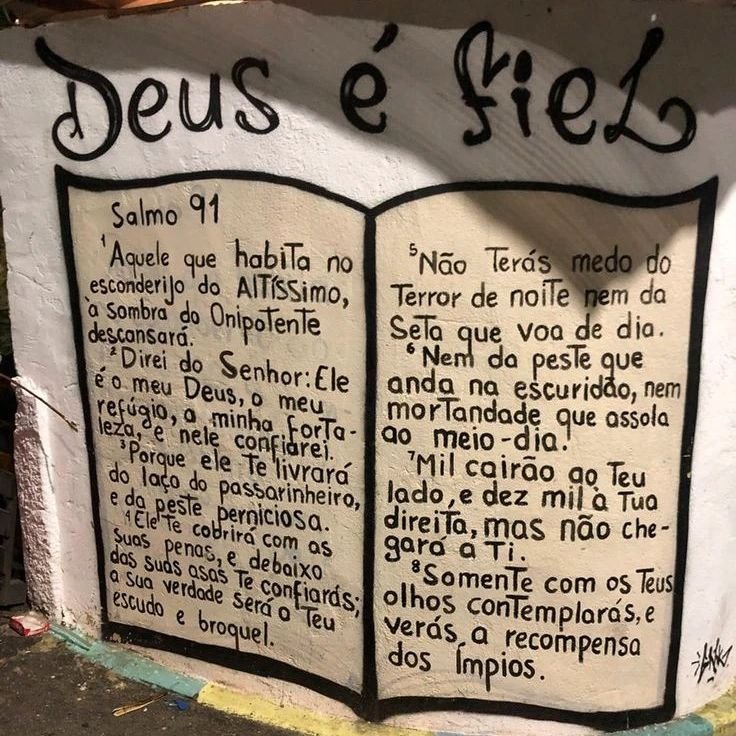 Deus é fiel
Salmo 91
1 Aquele que habita no
esconderijo do Altíssimo,
à sombra do Onipotente
descansará.
2 Direi do Senhor: Ele
é o meu Deus, o meu
refúgio, a minha forta-
leza, e nele confiarei.
3 Porque ele te livrará
do laço do passarinheiro,
e da peste perniciosa.
4 Ele te cobrirá com as
suas penas, e debaixo
das suas asas te confiarás;
a sua verdade será o teu
escudo e broquel.
5 Não terás medo do
terror de noite nem da
seta que voa de dia.
6 Nem da peste que
anda na escuridão, nem
mortandade que assola
ao meio-dia!
7 Mil cairão ao teu
lado, e dez mil à tua
direita, mas não che-
gará a ti.
8 Somente com os teus
olhos contemplarás, e
verás a recompensa
dos ímpios.